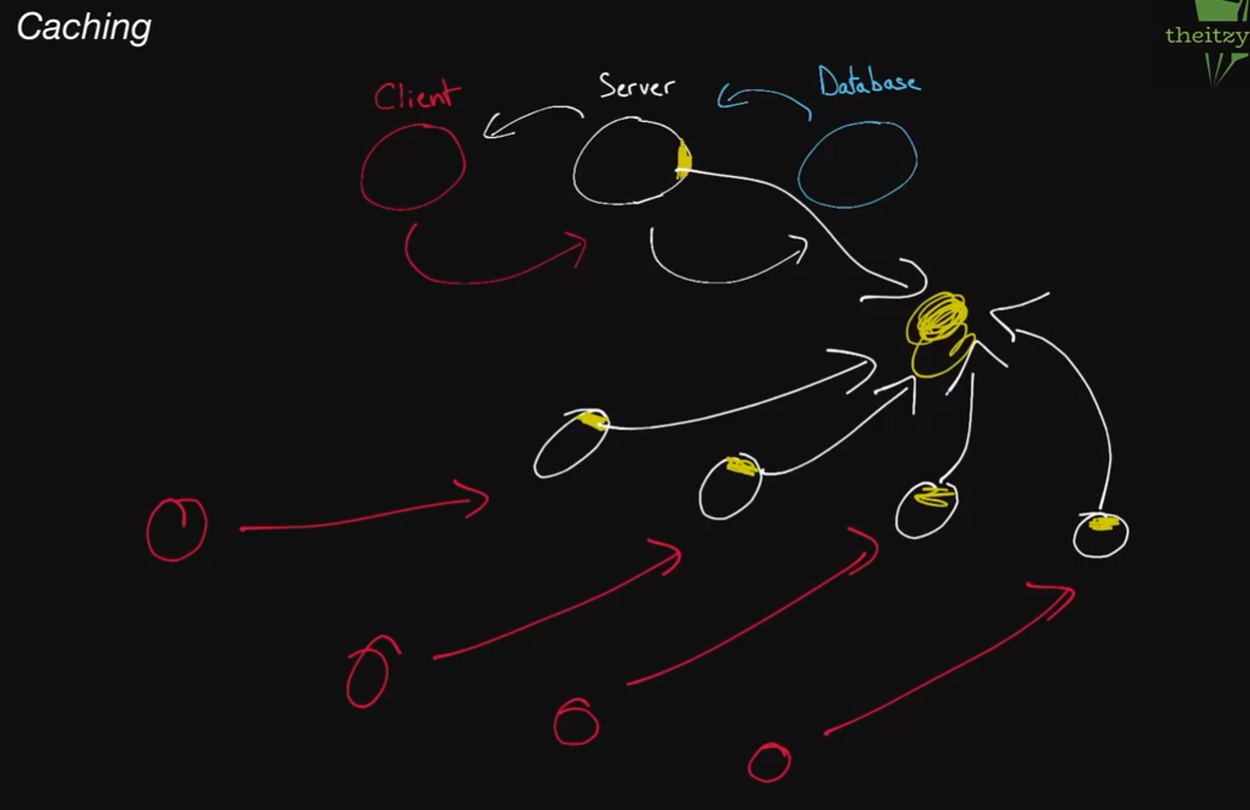 Caching
theitzy
Client
Server
Database